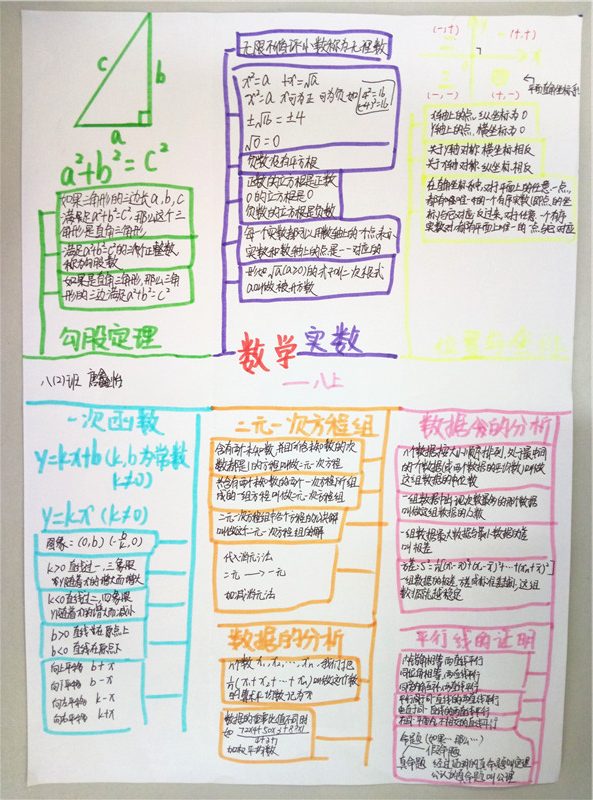 c
b
a
a²+b²=c²
如果三角形的三边长a,b,c
满足a²+b²=c²,那么这个三
角形是直角三角形
满足a²+b²=c²的三个正整数,
称为勾股数
如果是直角三角形,那么三角
形的三边满足a²+b²=c²
勾股定理
无限不循环小数称为无理数
±√16=±4
√0=0
负数没有平方根
正数的立方根是正数
0的立方根是0
负数的立方根是负数
每一个实数都可以用数轴上的一个点来表示
实数和数轴上的点是一一对应的
形如√a(a≥0)的式子叫二次根式
a叫做被开方数
数学 实数
(-,+)
(+,+)
(-,-)
(+,-)
平面直角坐标系
x轴上的点,纵坐标为0
y轴上的点,横坐标为0
关于y轴对称 横坐标相反
关于x轴对称 纵坐标相反
在直角坐标系中,对于平面上的任意一点,
都有唯一的一个有序实数(即点的坐
位置与坐标
八(2)班
一八上
一次函数
y=kx+b(k,b为常数
k≠0)
y=kx(k≠0)
图象=(0,b)(-b/k,0)
k>0 直线过一,三象限
y随着x的增大而增大
k<0 直线过二,四象限
y随着x的增大而减小
b>0 直线在原点上
b<0 直线在原点下
向上平移 b+x
向下平移 b-x
向左平移 k-x
向右平移 k+x
二元一次方程组
含有两个未知数,并且所含未知数的次
数都是1的方程叫做二元一次方程
共含有两个未知数的两个一次方程所组
成的一组方程叫做二元一次方程组
二元一次方程组中各个方程的公共解
叫做这个二元一次方程组的解
代入消元法
二元→一元
加减消元法
数据的分析
n个数x₁,x₂,…,xₙ,我们把
1/n(x₁+x₂+…+xₙ)叫做这n个数
的算术平均数,记为x̄
加权平均数
数据的分析
n个数据按大小顺序排列,处于最中间
的一个数据(或两个数据的平均数)叫做
这组数据的中位数
一组数据中出现次数最多的那个数据
叫做这组数据的众数
一组数据最大数据与最小数据的差
叫极差
数据就越稳定
平行线的证明
内错角相等,两直线平行
同位角相等,两直线平行
同旁内角互补,两直线平行
命题(如果…那么…)
假命题
真命题 经过证明的真命题叫定理
公认的真命题叫公理